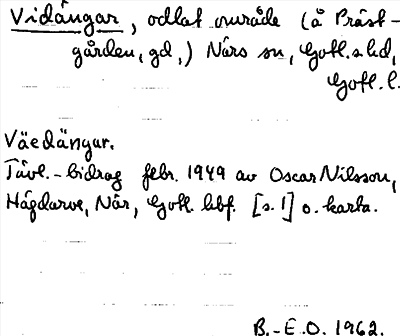 Vidängar, odlat område (å Präst-
gården, gd,) Närs sn, Gotl. s. hd,
Gotl. l.
Väedängar.
Tävl.-bidrag febr. 1949 av Oscar Nilsson,
Hägdarve, När, Gotl. hbf. [s. 1] o. karta.
B.-E.O. 1962.